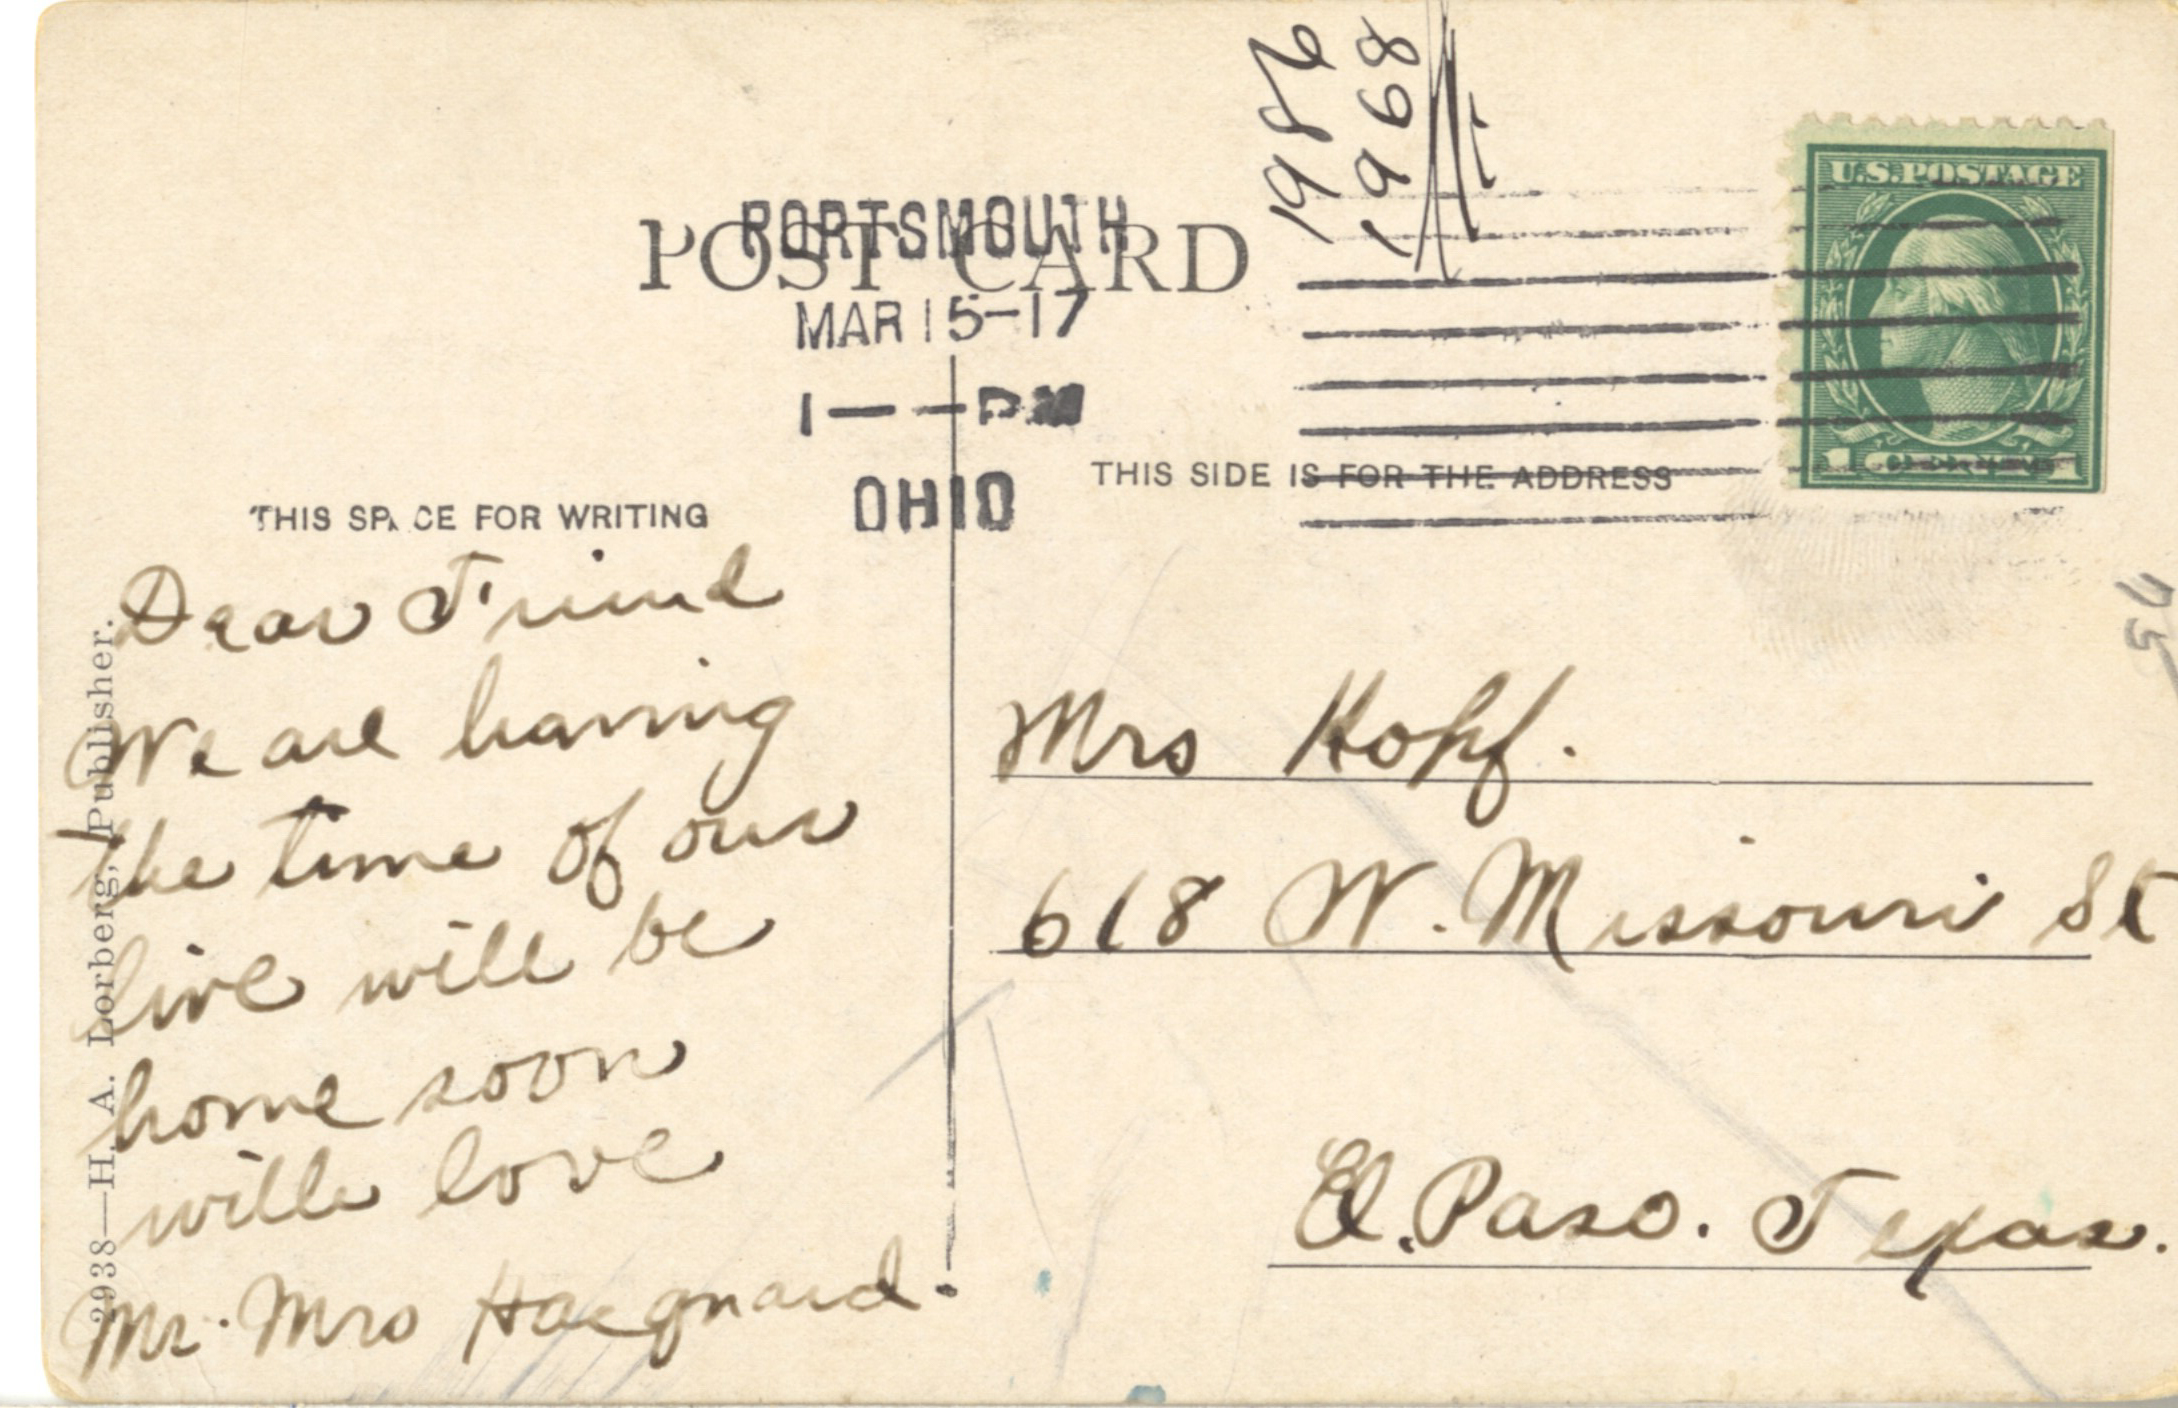 1986
1968
PORTSMOUTH
POST CARD
MAR 15-17
1 — — PM
OHIO
U.S. POSTAGE
1 CENT 1
THIS SPACE FOR WRITING
THIS SIDE IS FOR THE ADDRESS
Dear Friend
We are having
the time of our
live will be
home soon
with love
Mr. Mrs Hacquard.
Mrs Hopf.
618 W. Missouri St
El. Paso. Texas.
2938—H. A. Lorberg, Publisher.